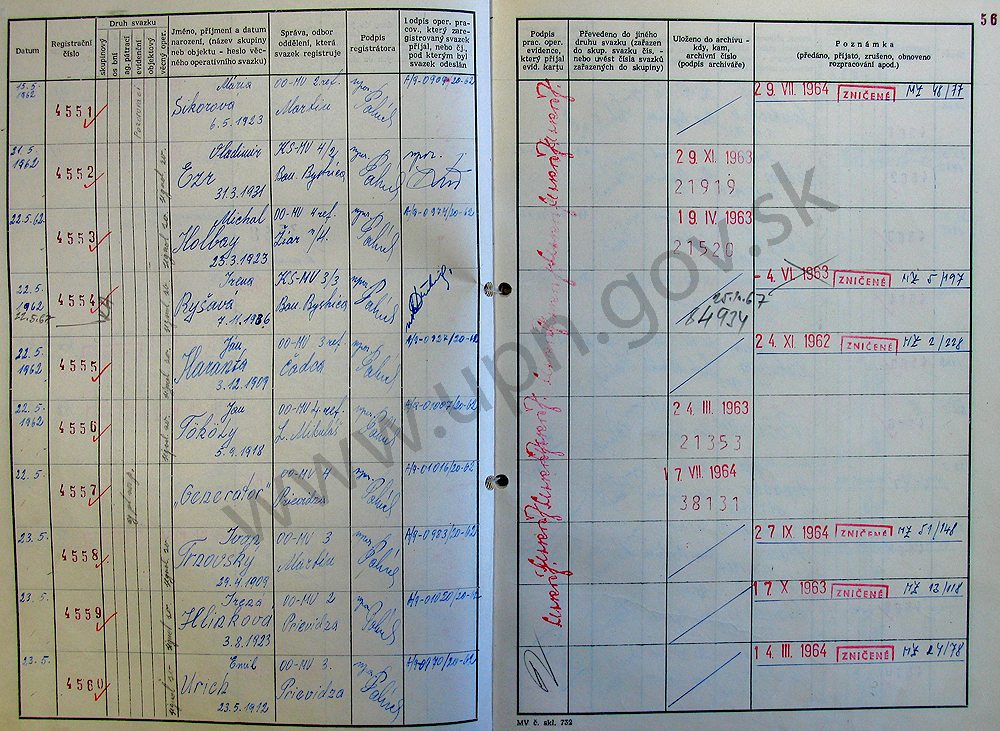 56
Datum
Registrační číslo
Druh svazku
skupinový
os bní
ag. pátrací
evidenční
objektový
věcný oper.
Jméno, příjmení a datum narození, (název skupiny neb objektu - heslo věcného operativního svazku)
Správa, odbor oddělení, která svazek registruje
Podpis registrátora
Podpis oper. pracov., který zaregistrovaný svazek přijal, nebo čj., pod kterým byl svazek odeslán
Podpis prac. oper. evidence, který přijal evid. kartu
Převedeno do jiného druhu svazku (zařazen do skup. svazku čís. - nebo uvést čísla svazků zařazených do skupiny)
Uloženo do archivu - kdy, kam, archivní číslo (podpis archiváře)
Poznámka
(předáno, přijato, zrušeno, obnoveno rozpracování apod.)
15.5. 1962
4551
Mária
Sikorová
6.5.1923
OO-MV 2.ref.
Martin
A/9-0909/20-62
29. VII. 1964
ZNIČENÉ
MZ 48/77
21.5. 1962
4552
Vladimír
Ezr
31.3.1931
KS-MV 4/2
Ban. Bystrica
29. XI. 1963
21919
22.5.62
4553
Michal
Holbay
25.3.1923
OO-MV 4.ref.
Žiar n/H.
A/9-0974/20-62
19. IV. 1963
21520
22.5. 1962
22.5.67
4554
Irena
Ryšavá
7.11.1936
KS-MV 3/3
Ban. Bystrica
- 4. VI. 1963
ZNIČENÉ
MZ 5/197
64934
22.5. 1962
4555
Jan
Haranta
3.12.1909
OO-MV 3 ref.
Čadca
A/9-0927/20-62
24. XI. 1962
ZNIČENÉ
MZ 2/228
22.5. 1962
4556
Jan
Tököly
5.9.1918
OO-MV 4.ref.
L. Mikuláš
A/9-01007/20-62
24. III. 1963
21353
22.5.
4557
„Generátor“
OO-MV 4
Prievidza
A/9-01016/20-62
17. VII. 1964
38131
23.5.
4558
Ivan
Trnovský
29.4.1909
OO-MV 3
Martin
A/9-0983/20-62
27 IX 1964
ZNIČENÉ
MZ 51/148
23.5.
4559
Irena
Hlinková
3.8.1923
OO-MV 2
Prievidza
17 X 1963
ZNIČENÉ
23.5.
4560
Emil
Urich
23.5.1912
OO-MV 3.
Prievidza
A/9-0970/20-62
14. III. 1964
ZNIČENÉ
MZ 24/78
MV č. skl. 732
www.upn.gov.sk